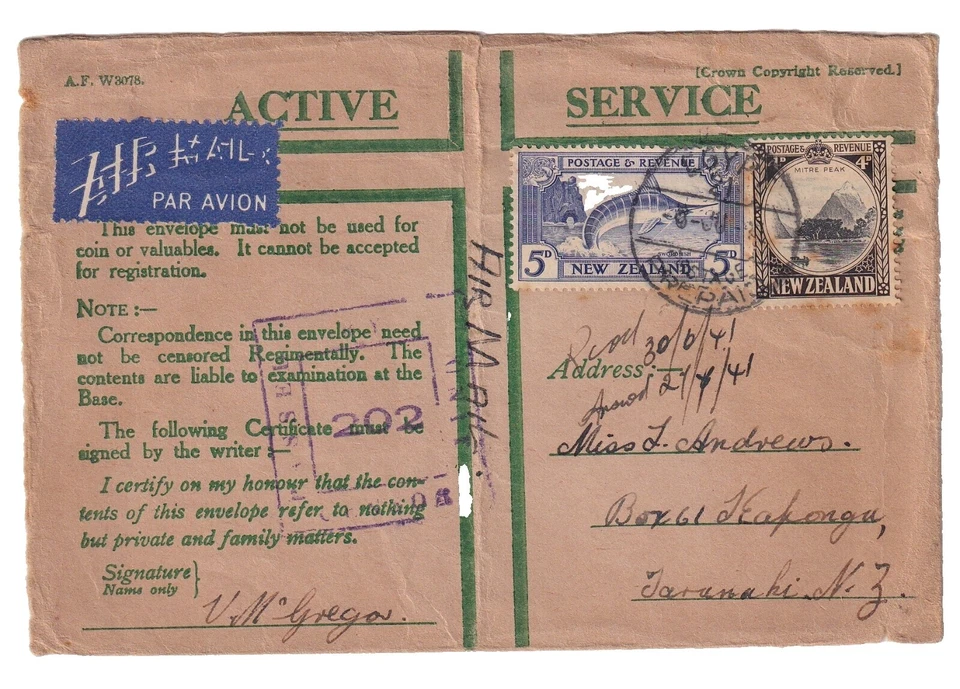 A.F. W3078.
[Crown Copyright Reserved.]
ACTIVE SERVICE
AIR MAIL
PAR AVION
POSTAGE & REVENUE
5D
5D
NEW ZEALAND
POSTAGE & REVENUE
4D
MITRE PEAK
NEW ZEALAND
PREPAID
This envelope must not be used for
coin or valuables. It cannot be accepted
for registration.
NOTE :—
Correspondence in this envelope need
not be censored Regimentally. The
contents are liable to examination at the
Base.
The following Certificate must be
signed by the writer :—
I certify on my honour that the con-
tents of this envelope refer to nothing
but private and family matters.
Signature
Name only
V. McGregor.
AIR MAIL.
202
Recd 30/6/41
Address :—
Answd 2/7/41
Miss L. Andrews.
Box 61 Kaponga,
Taranaki. N. Z.